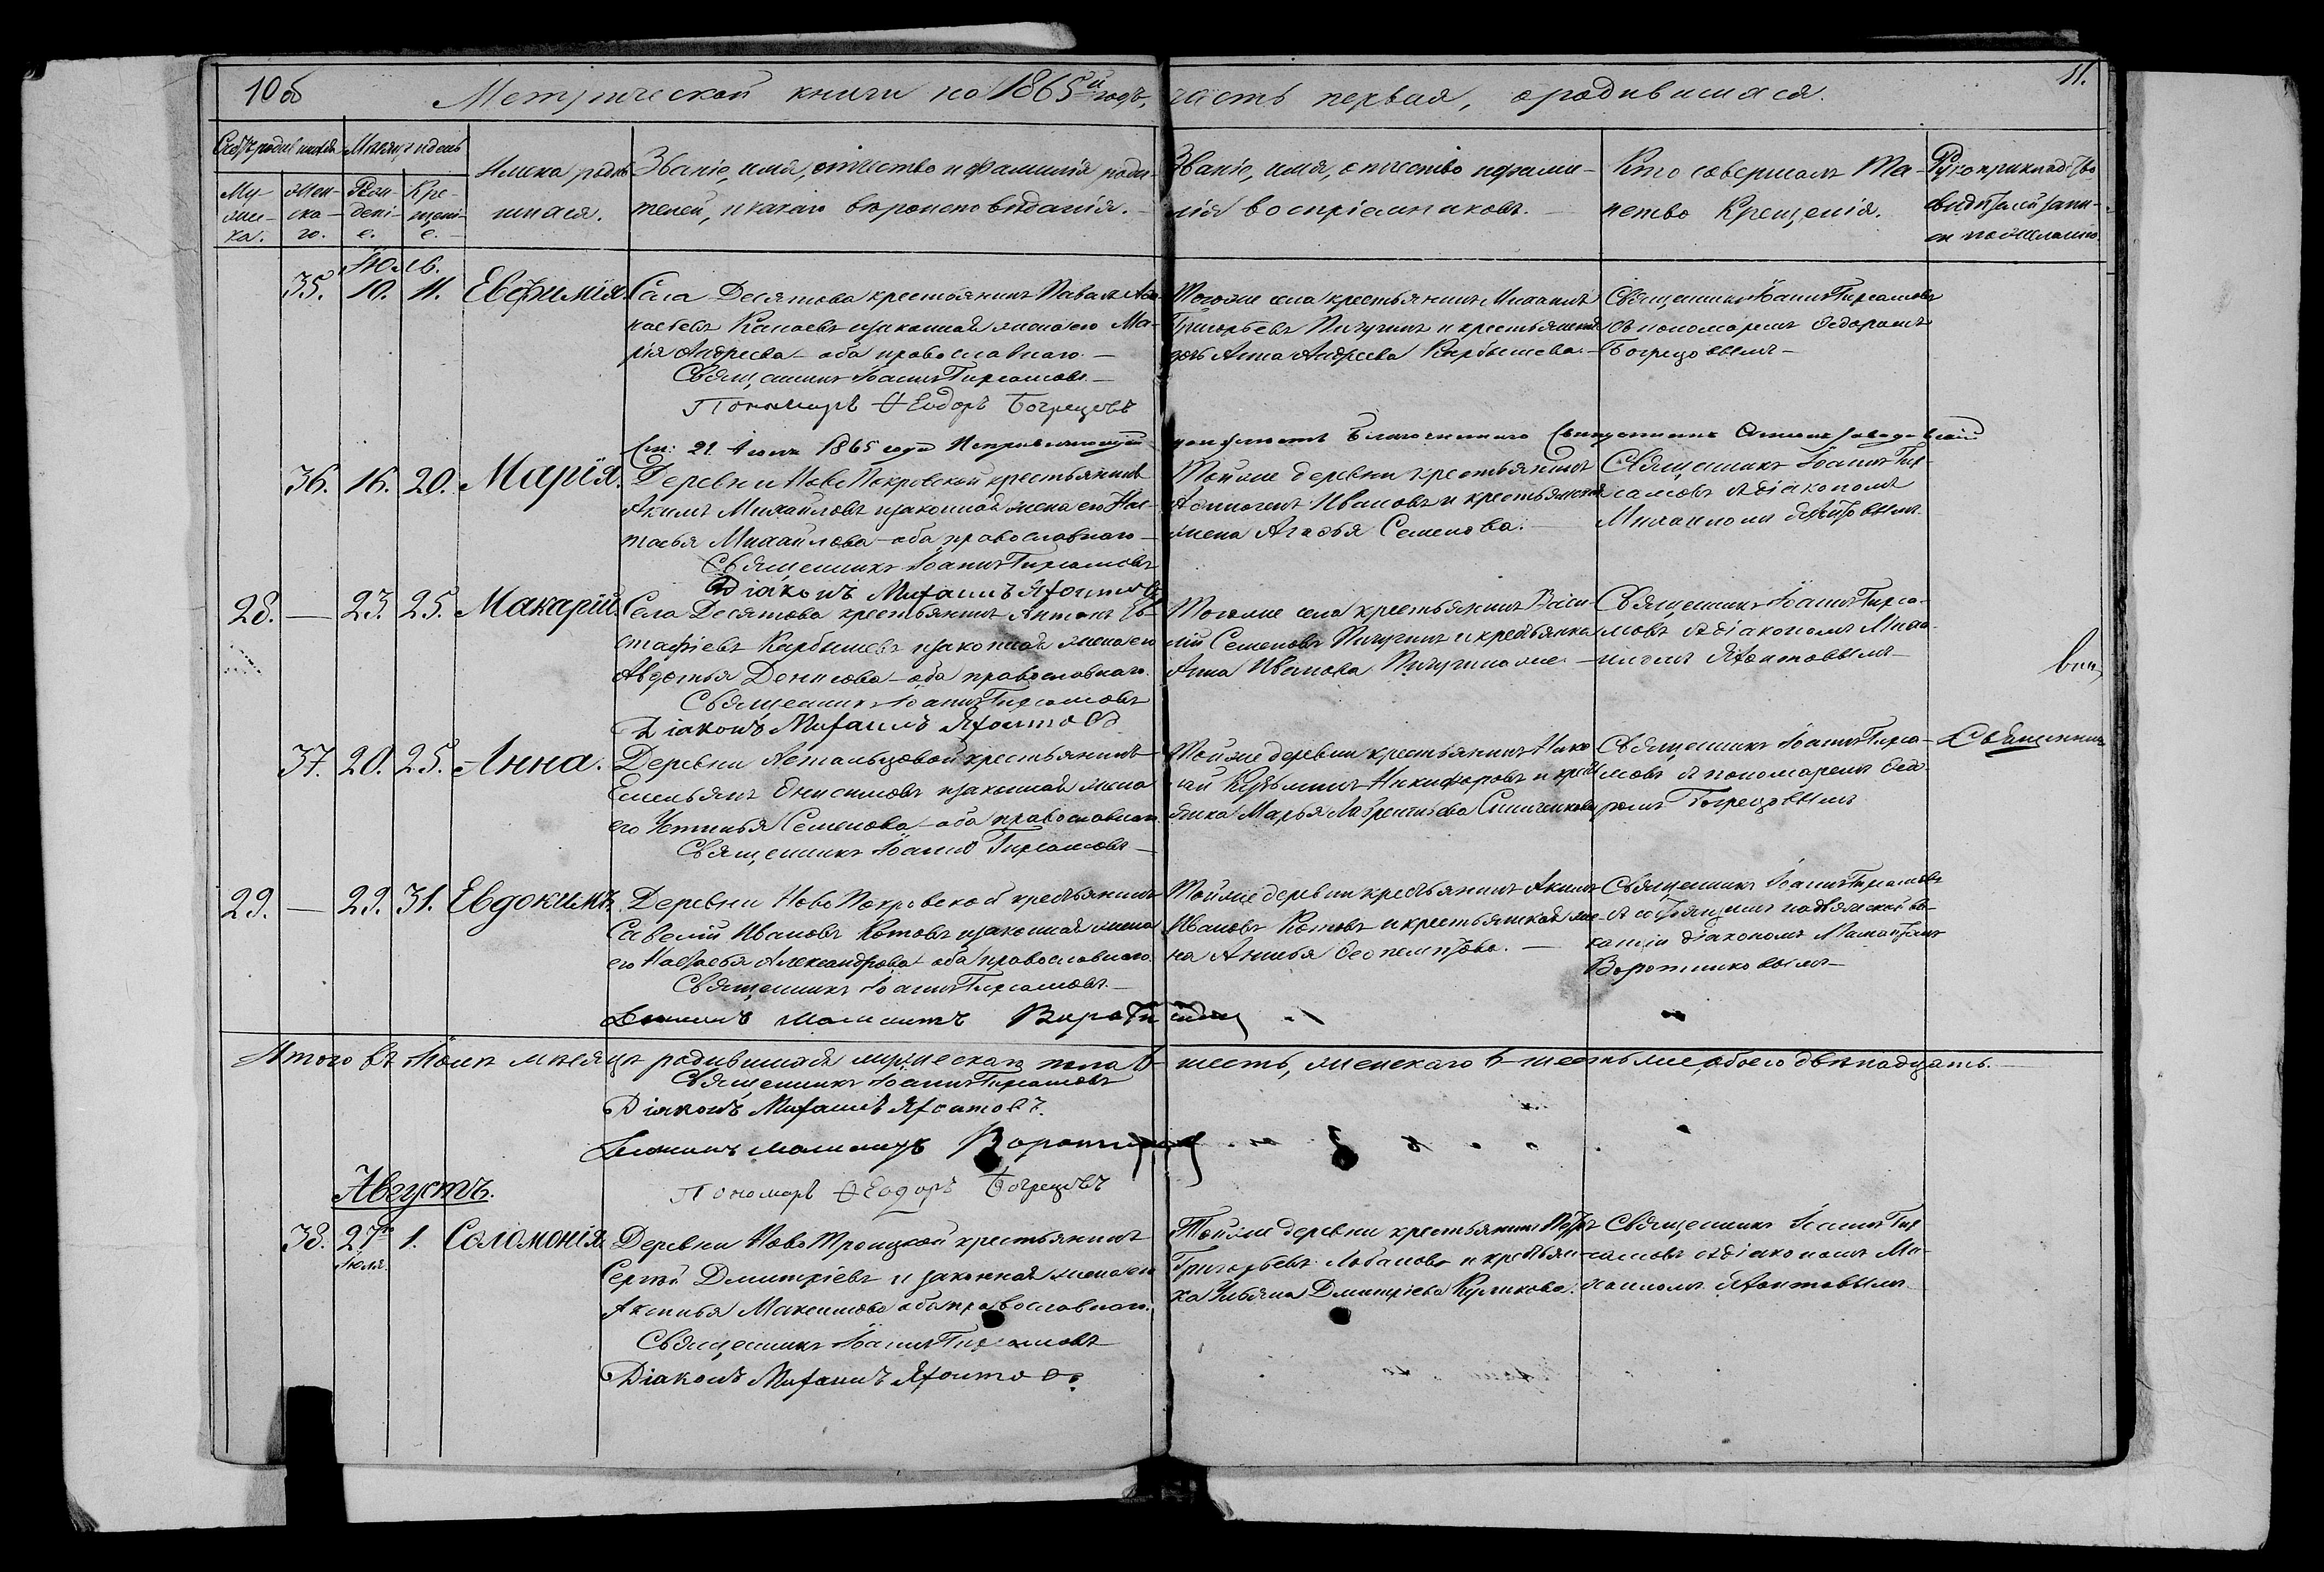 10об
Метрической книги на 1865й годъ,
часть первая, о родившихся.
11.
Счетъ родившихся
Мѣсяцъ и день
Имена родив-
шихся.
Званіе, имя, отчество и фамилія роди-
телей, и какаго вѣроисповѣданія.
Званіе, имя, отчество и фами-
лія воспріемниковъ.
Кто совершалъ Та-
инство Крещенія.
Рукоприкладство
свидѣтелей запи-
си по желанію.
Му-
жес-
ка.
Жен-
ска-
го.
Рож-
дені-
е.
Кре-
щені-
е.
Июль.
35. 10. 11. Евфимія.
Села Десятова крестьянинъ Павелъ
и законная жена его Ма-
рія Андреева оба православнаго.
Священникъ Іоаннъ Гирсамовъ
Пономарь Ѳеодоръ Богрецовъ
Тогоже села крестьянинъ Михаилъ
Григорьевъ Пичугинъ и крестьянская
дочь Анна Андреева Карбышева.
Священникъ Іоаннъ Гирсамовъ
съ пономаремъ Ѳедоромъ
Богрецовымъ
21 1865 года
должность благочиннаго Священникъ
36. 16. 20. Марія.
Деревни Ново Покровской крестьянинъ
Акимъ Михайловъ и законная жена его Нас-
тасья Михайлова оба православнаго
Священникъ Іоаннъ Гирсамовъ
Діаконъ Михаилъ Яхонтовъ
Тойже деревни крестьянинъ
Ивановъ и крестьянская
жена Агафья Семенова.
Священникъ Іоаннъ Гир-
самовъ съ діакономъ
Михаиломъ Яхонтовымъ
28. — 23. 25. Макарій.
Села Десятова крестьянинъ Антонъ Ев-
стафіевъ Карбышевъ и законная жена его
Авдотья Денисова оба православнаго.
Священникъ Іоаннъ Гирсамовъ
Діаконъ Михаилъ Яхонтовъ
Тогоже села крестьянинъ Васи-
лій Семеновъ Пичугинъ и крестьянка
Анна Иванова Пичугина же
Священникъ Іоаннъ Гирса-
мовъ съ діакономъ Миха-
иломъ Яхонтовымъ
37. 20. 25. Анна.
Деревни крестьянинъ
Емельянъ Онисимовъ и законная жена
его Устинья Семенова оба православнаго.
Священникъ Іоаннъ Гирсамовъ
Тойже деревни крестьянинъ Нико-
лай Кузьминъ Никифоровъ и крест-
янка Марья Лаврентьева
Священникъ Іоаннъ Гирса-
мовъ съ пономаремъ Ѳео-
ромъ Богрецовымъ
Священникъ
29. — 29. 31. Евдокимъ.
Деревни Ново Покровской крестьянинъ
Савелій Ивановъ Котовъ и законная жена
его Настасья Александрова оба православнаго.
Священникъ Іоаннъ Гирсамовъ.
Тойже деревни крестьянинъ Акимъ
Ивановъ Котовъ и крестьянская же-
на Анисья Ѳеопемптова.
Священникъ Іоаннъ Гирсамовъ
діакономъ
Воротниковымъ
Итого въ Июлѣ мѣсяцѣ родившихся мужескаго пола 6 шесть, женскаго 6 шесть же, обоего двѣнадцать.
Священникъ Іоаннъ Гирсамовъ
Діаконъ Михаилъ Яхонтовъ.
Пономарь Ѳеодоръ Богрецовъ
Августъ.
38. 27го 1. Соломонія.
Июля.
Деревни Ново Троицкой крестьянинъ
Сергѣй Дмитріевъ и законная жена его
Аксинья Максимова оба православнаго.
Священникъ Іоаннъ Гирсамовъ
Діаконъ Михаилъ Яхонтовъ
Тойже деревни крестьянинъ Петръ
Григорьевъ Лобановъ и крестьян-
ка Ульяна Дмитріева Куликова.
Священникъ Іоаннъ Гир-
самовъ съ діакономъ Ми-
хаиломъ Яхонтовымъ